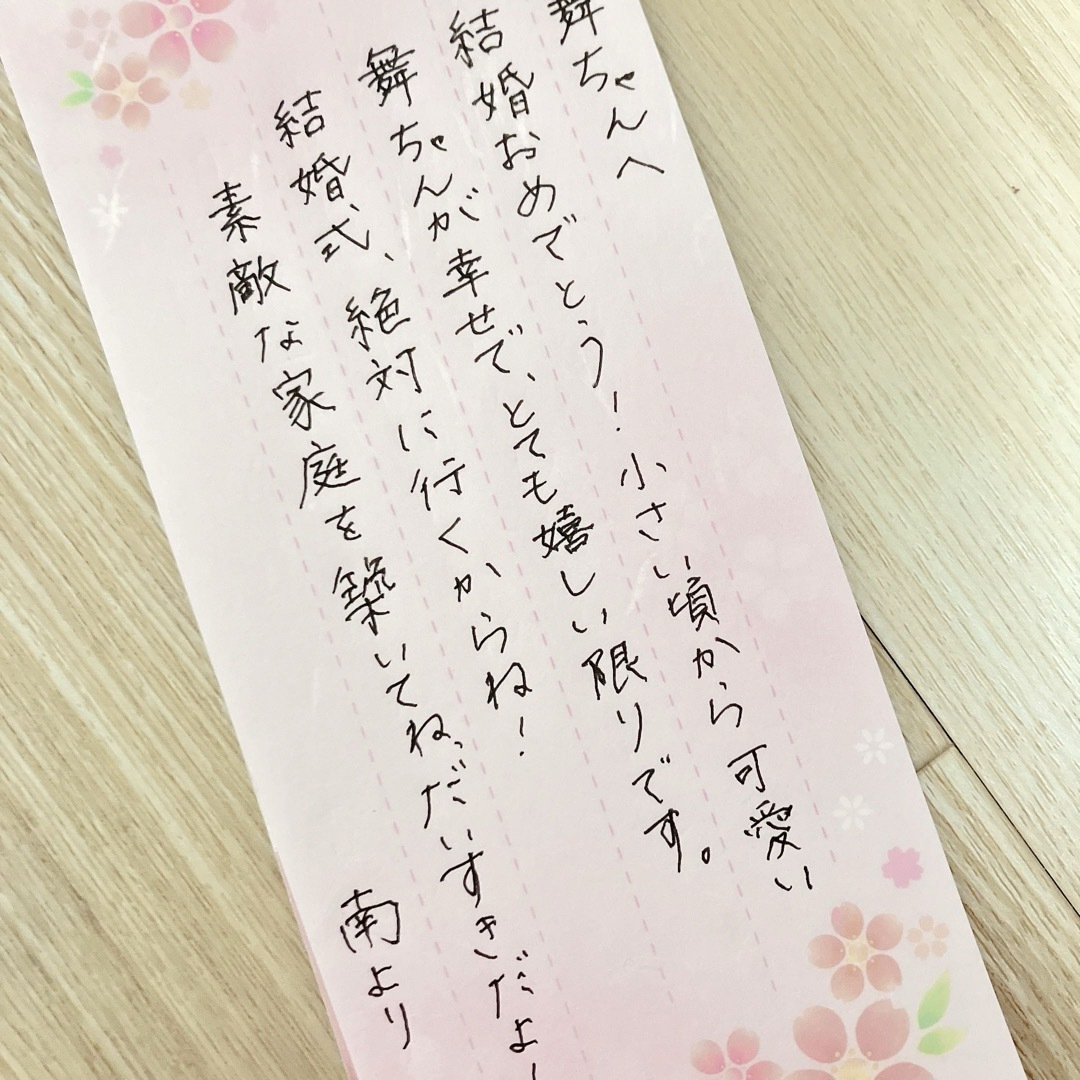 舞ちゃんへ
結婚おめでとう！小さい頃から可愛い
舞ちゃんが幸せで、とても嬉しい限りです。
結婚式、絶対に行くからね！
素敵な家庭を築いてね、だいすきだよー
南より